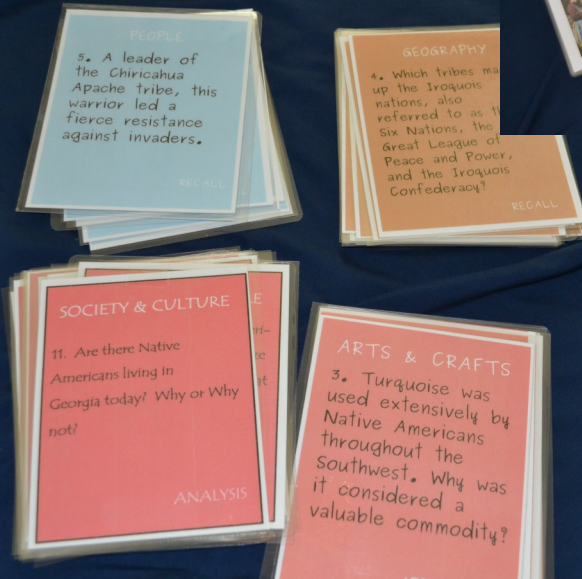 PEOPLE
5. A leader of
the Chiricahua
Apache tribe, this
warrior led a
fierce resistance
against invaders.
RECALL
GEOGRAPHY
4. Which tribes
up the Iroquois
nations, also
referred to as
Six Nations, the
Great League of
Peace and Power,
and the Iroquois
Confederacy?
RECALL
SOCIETY & CULTURE
11. Are there Native
Americans living in
Georgia today? Why or Why
not?
ANALYSIS
ARTS & CRAFTS
3. Turquoise was
used extensively by
Native Americans
throughout the
Southwest. Why was
it considered a
valuable commodity?